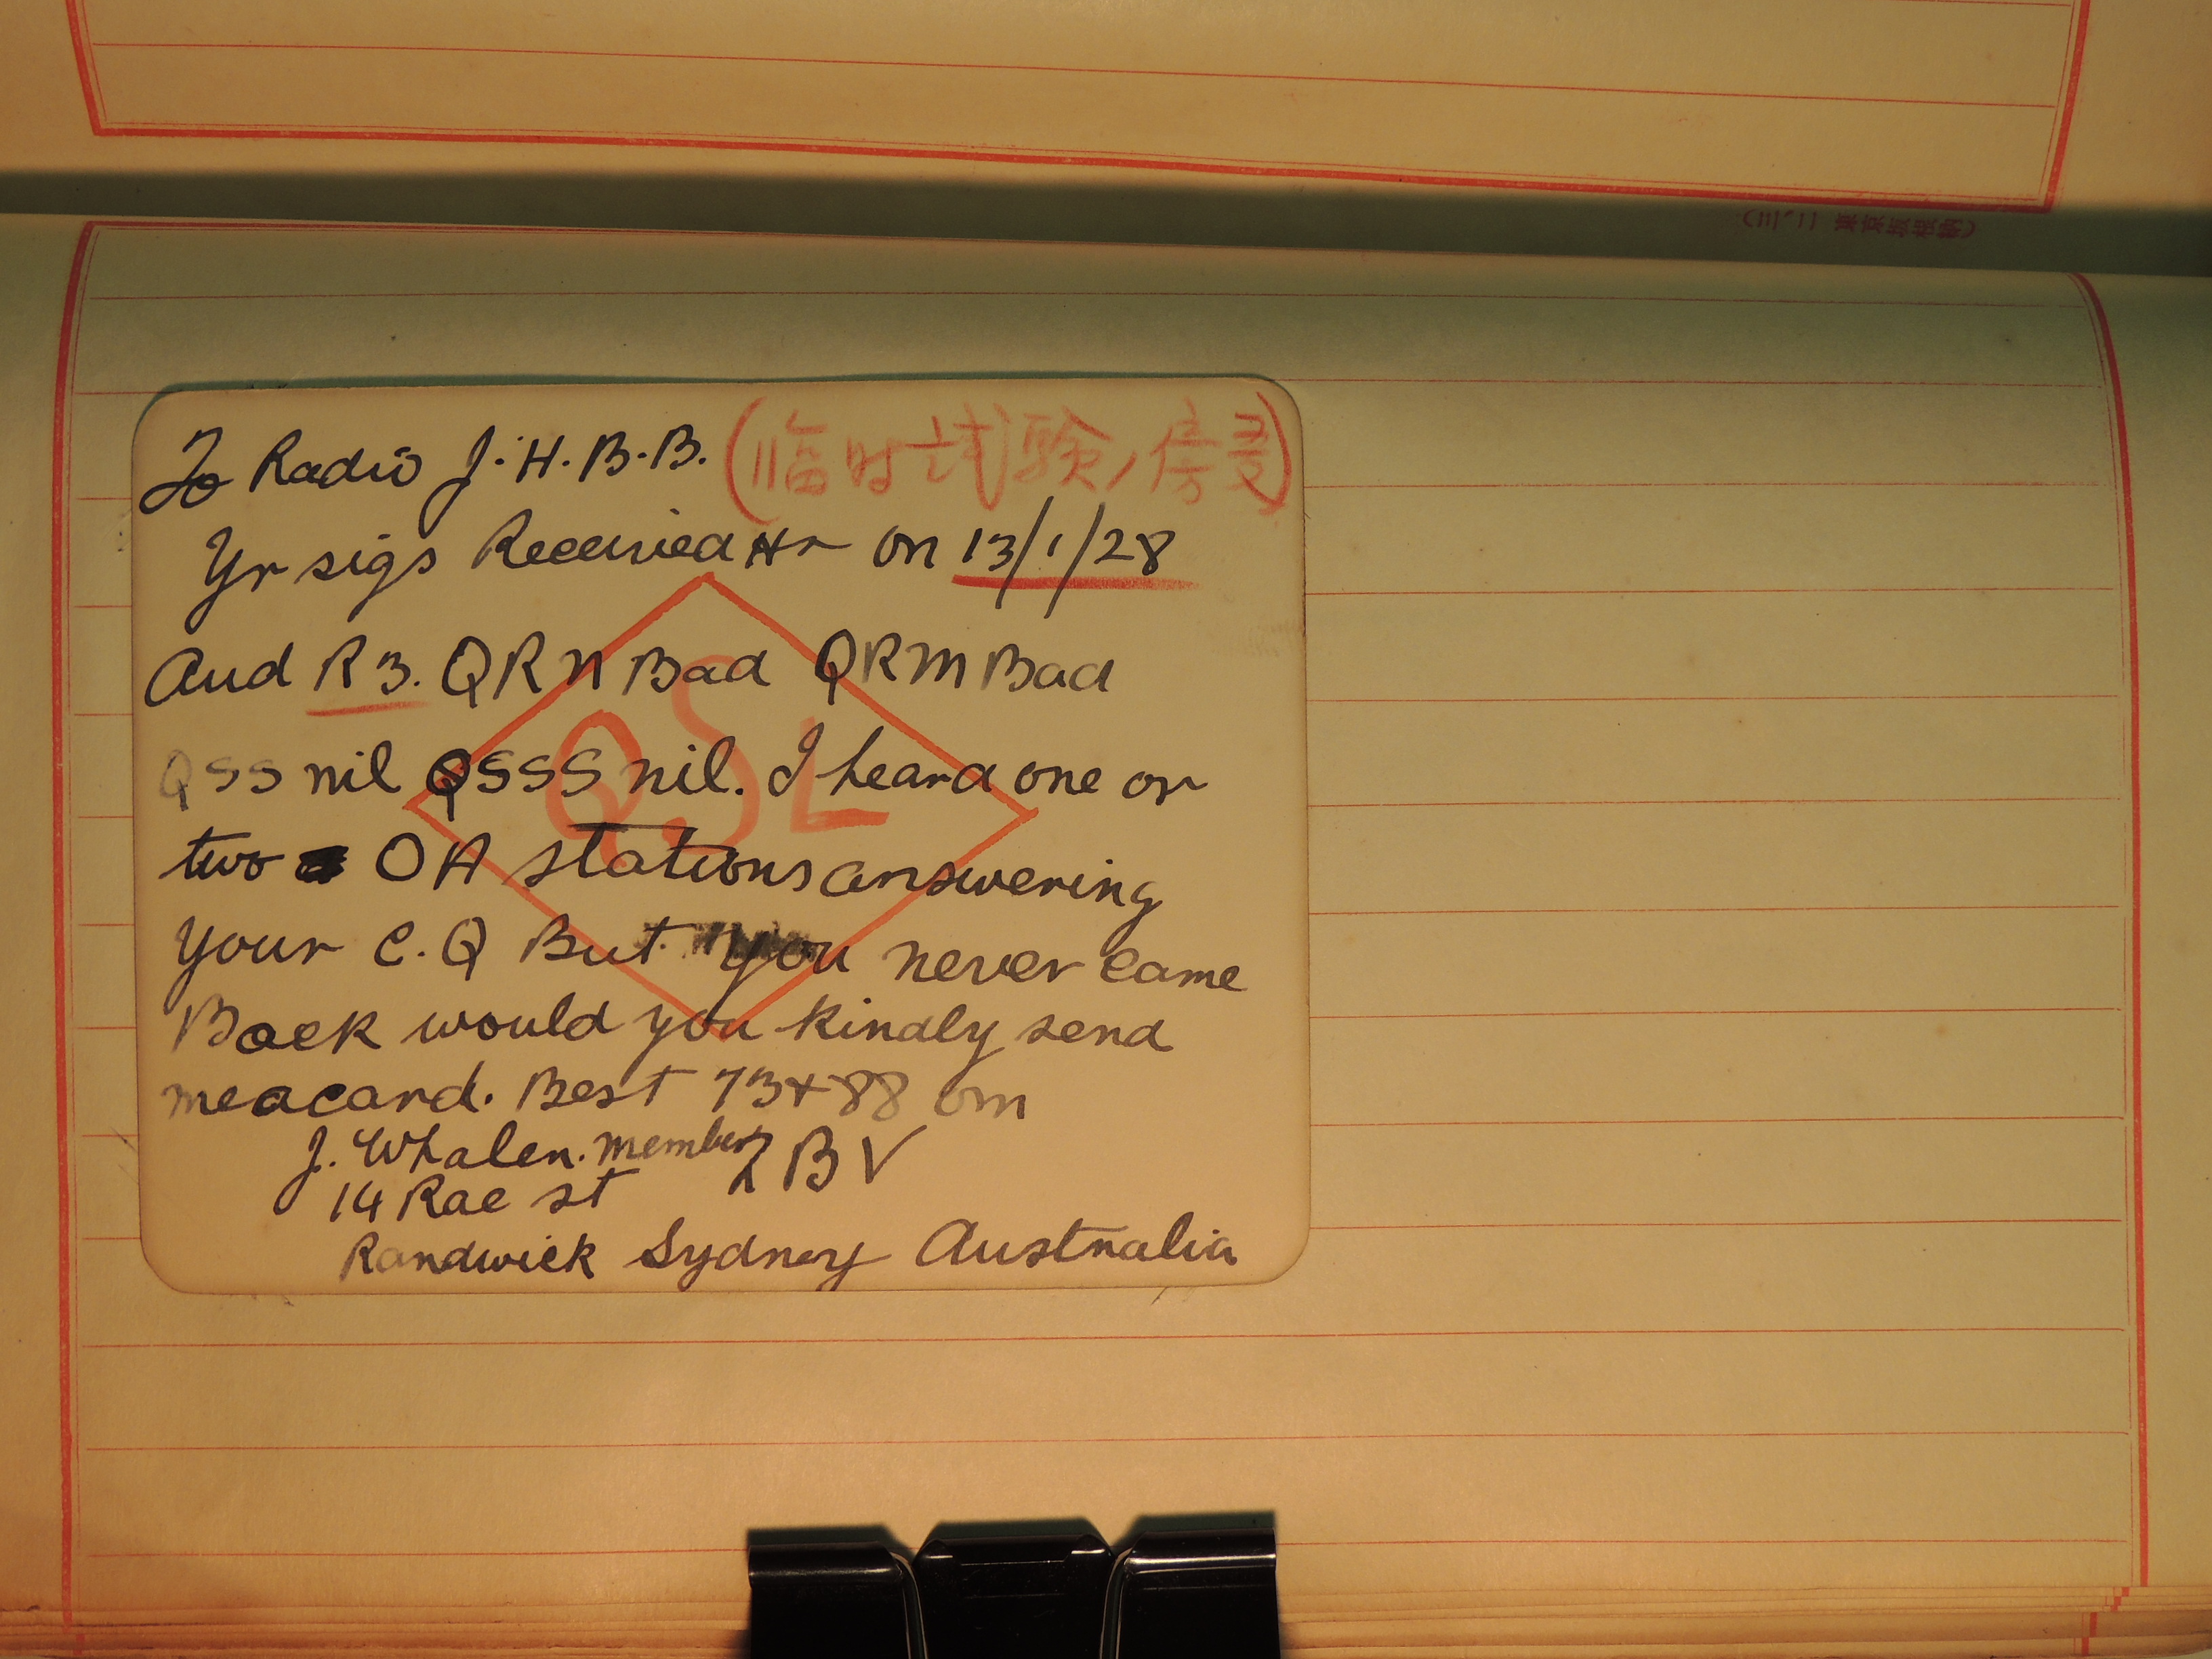 To Radio J.H.B.B. (臨时试験ノ
Yr sigs Received Hr on 13/1/28
Aud R3. QRN Bad QRM Bad
QSS nil QSSS nil. I heard one or
two OA stations answering
your C.Q But you never came
Back would you kindly send
me a card. Best 73 + 88 om
J. Whalen. member 2BV
14 Rae st
Randwick Sydney Australia
QSL